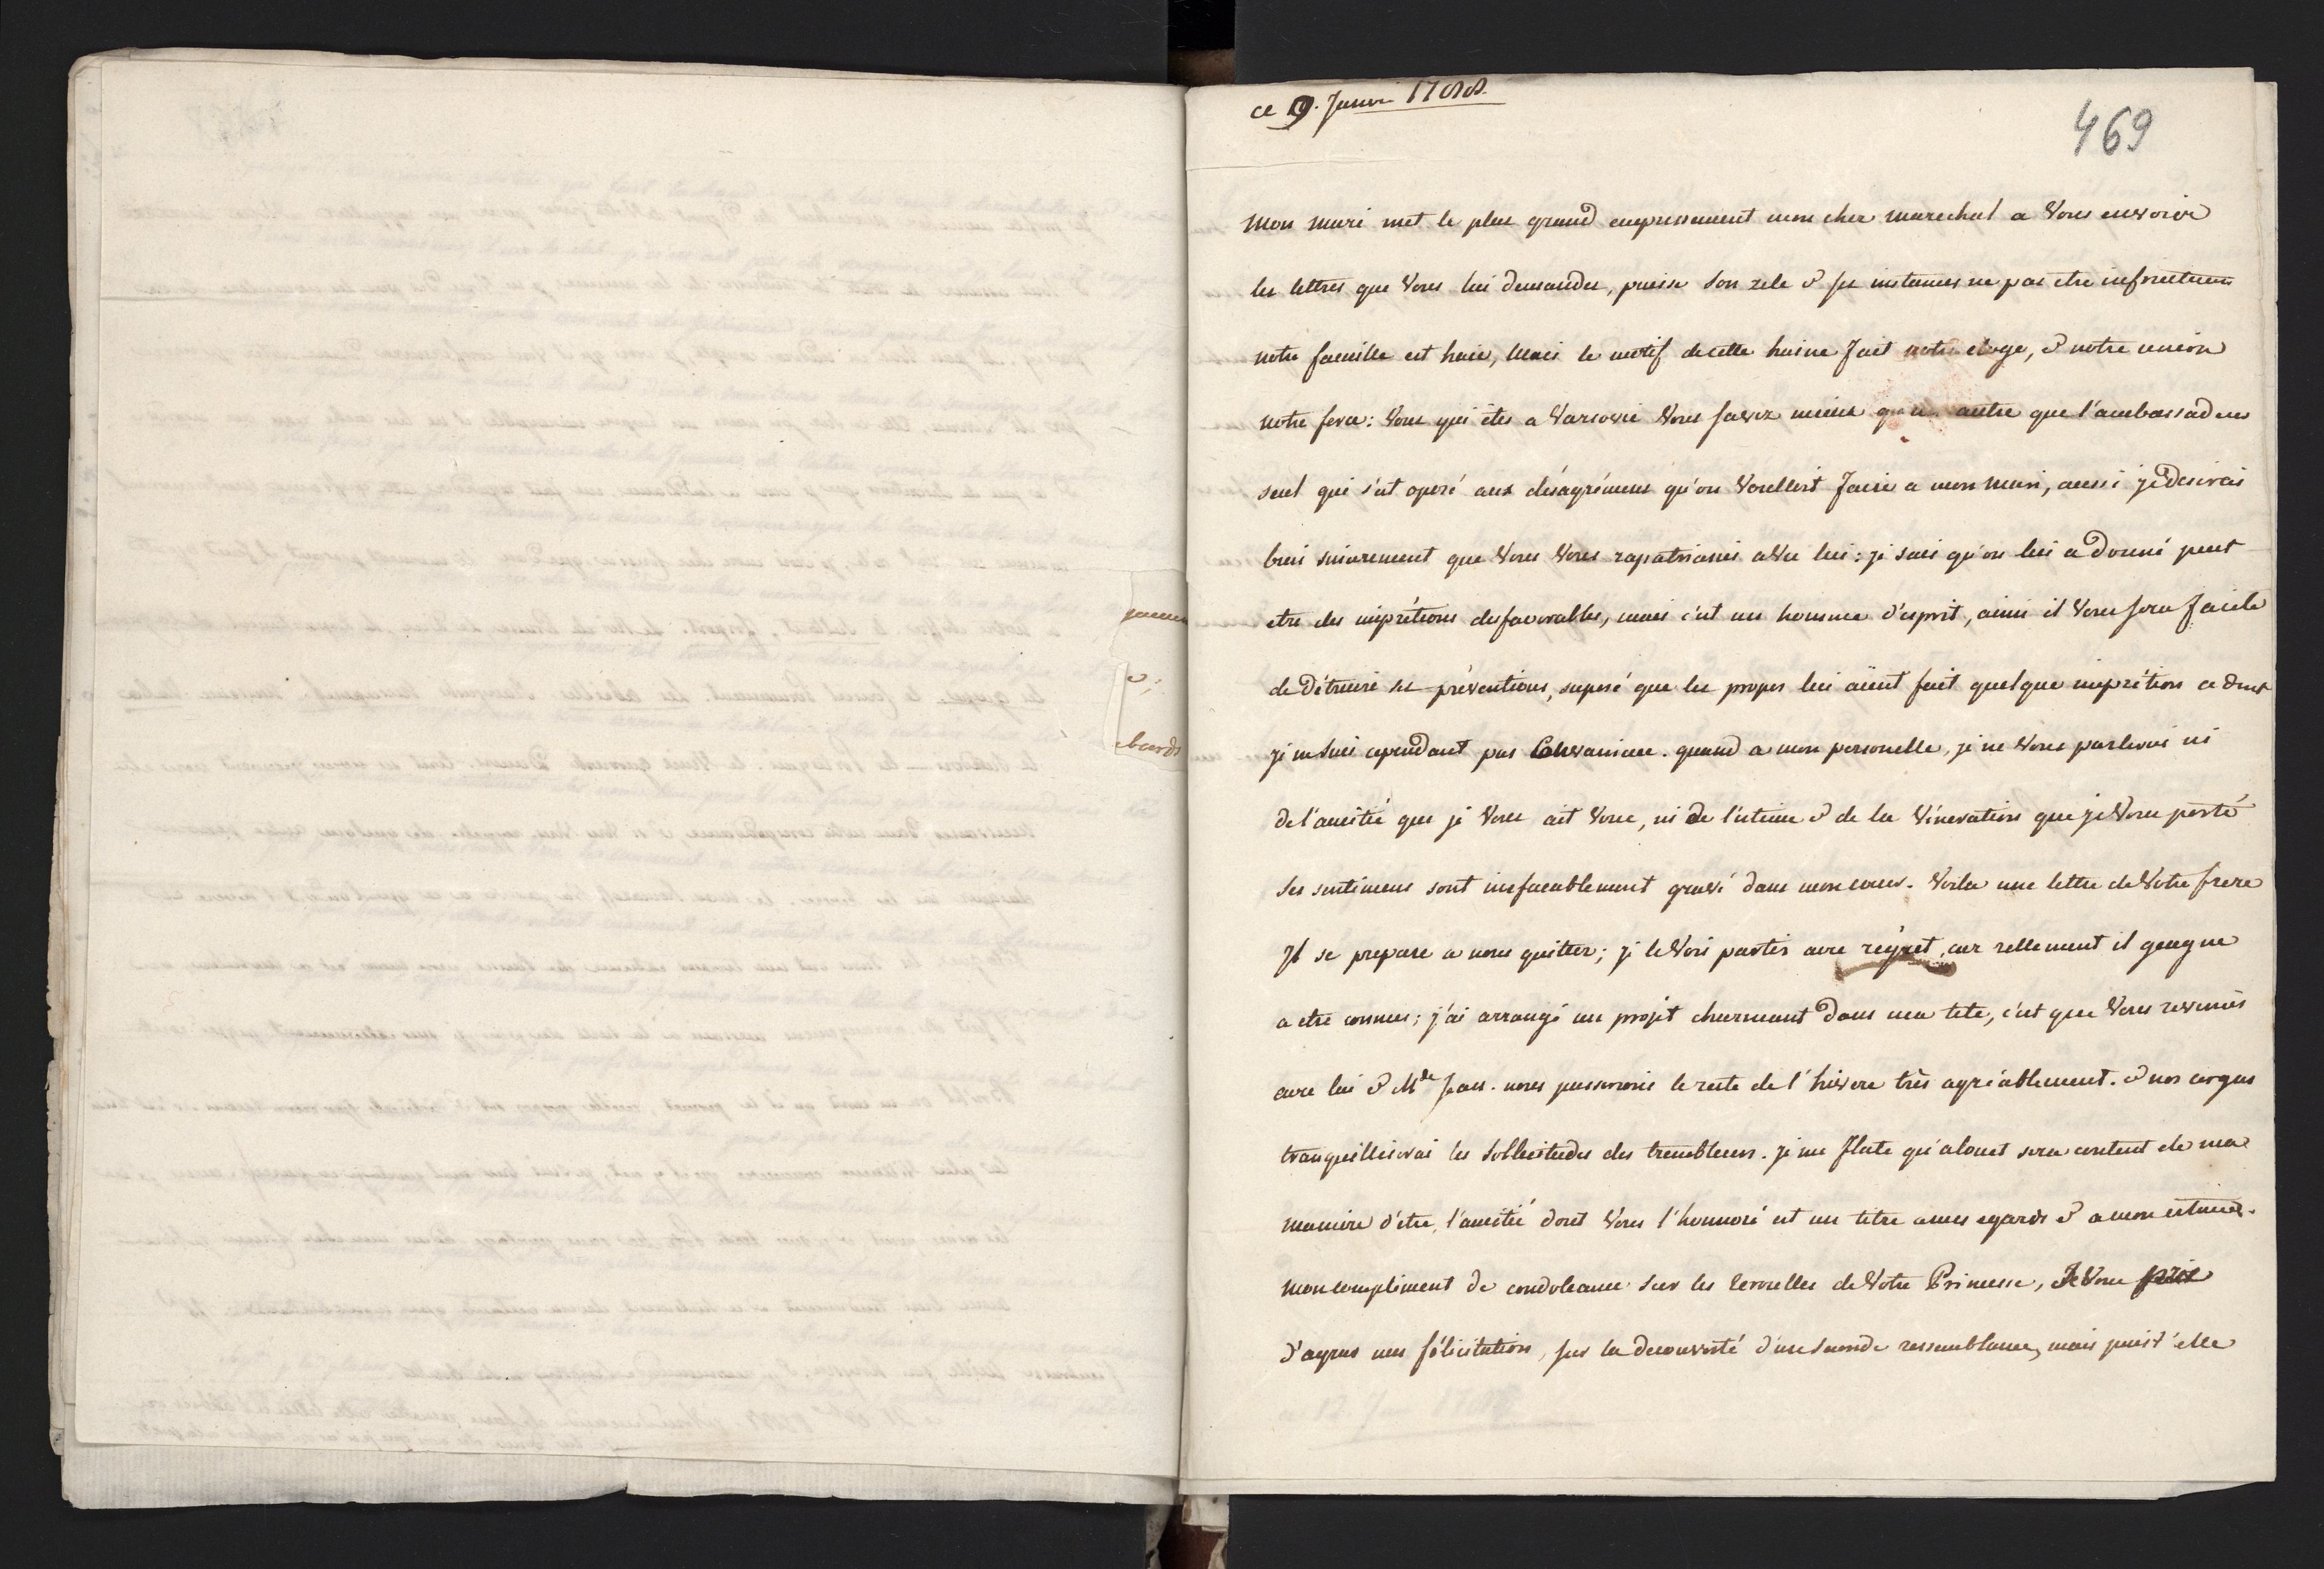 ce 9. Janvie 1788.
469
Mon mari met le plus grand empressement mon cher marechal a Vous envoier
les lettres que Vous lui demandes, puisse son zele & ses instances ne pas etre infructueux
notre famille est haie, Mais le motif de cette haine fait notre eloge, & notre union
notre force: Vous qui êtes a Varsovie Vous savez mieux qu'un autre que l'ambassadeur
seul qui s'est oposé aux désagrémens qu'on Voulloit faire a mon mari, aussi je desirais
bien sincerement que Vous Vous rapatriasiés avec lui: je sais qu'on lui a donné peut
etre des imprétions desfavorables, mais c'est un homme d'esprit, ainsi il Vous sera facile
de détruire ses préventions, suposé que les propos lui aient fait quelque imprétion ce dont
je ne suis cependant pas Convaincue. quand a mon personelle, je ne Vous parlerai ni
de l'amitié que je Vous ait Voué, ni de l'estime & de la Vénération que je Vous porte
Ses sentimens sont inefacablement gravé dans mon coeur. Voila une lettre de Votre frere
Il se prepare a nous quitter; je le Vois partir avec régret, car rellement il gangne
a etre connus; j'ai arrangé un projet charmant dans ma tete, c'est que Vous reveniés
avec lui & Mde Jean. nous passerions le reste de l'hivere très agréablement. & nos
tranquilliserai les sollicitudes des trembleurs. je me flate qu'alouet sera content de ma
maniere d'etre, l'amitié dont Vous l'honnoré est un titre a mes egards & a mon estime.
mon compliment de condoleance sur les de Votre Princesse, Je Vous prie
d'agreer mes félicitation, sur la decouverte d'une seconde ressemblance, mais puist'elle